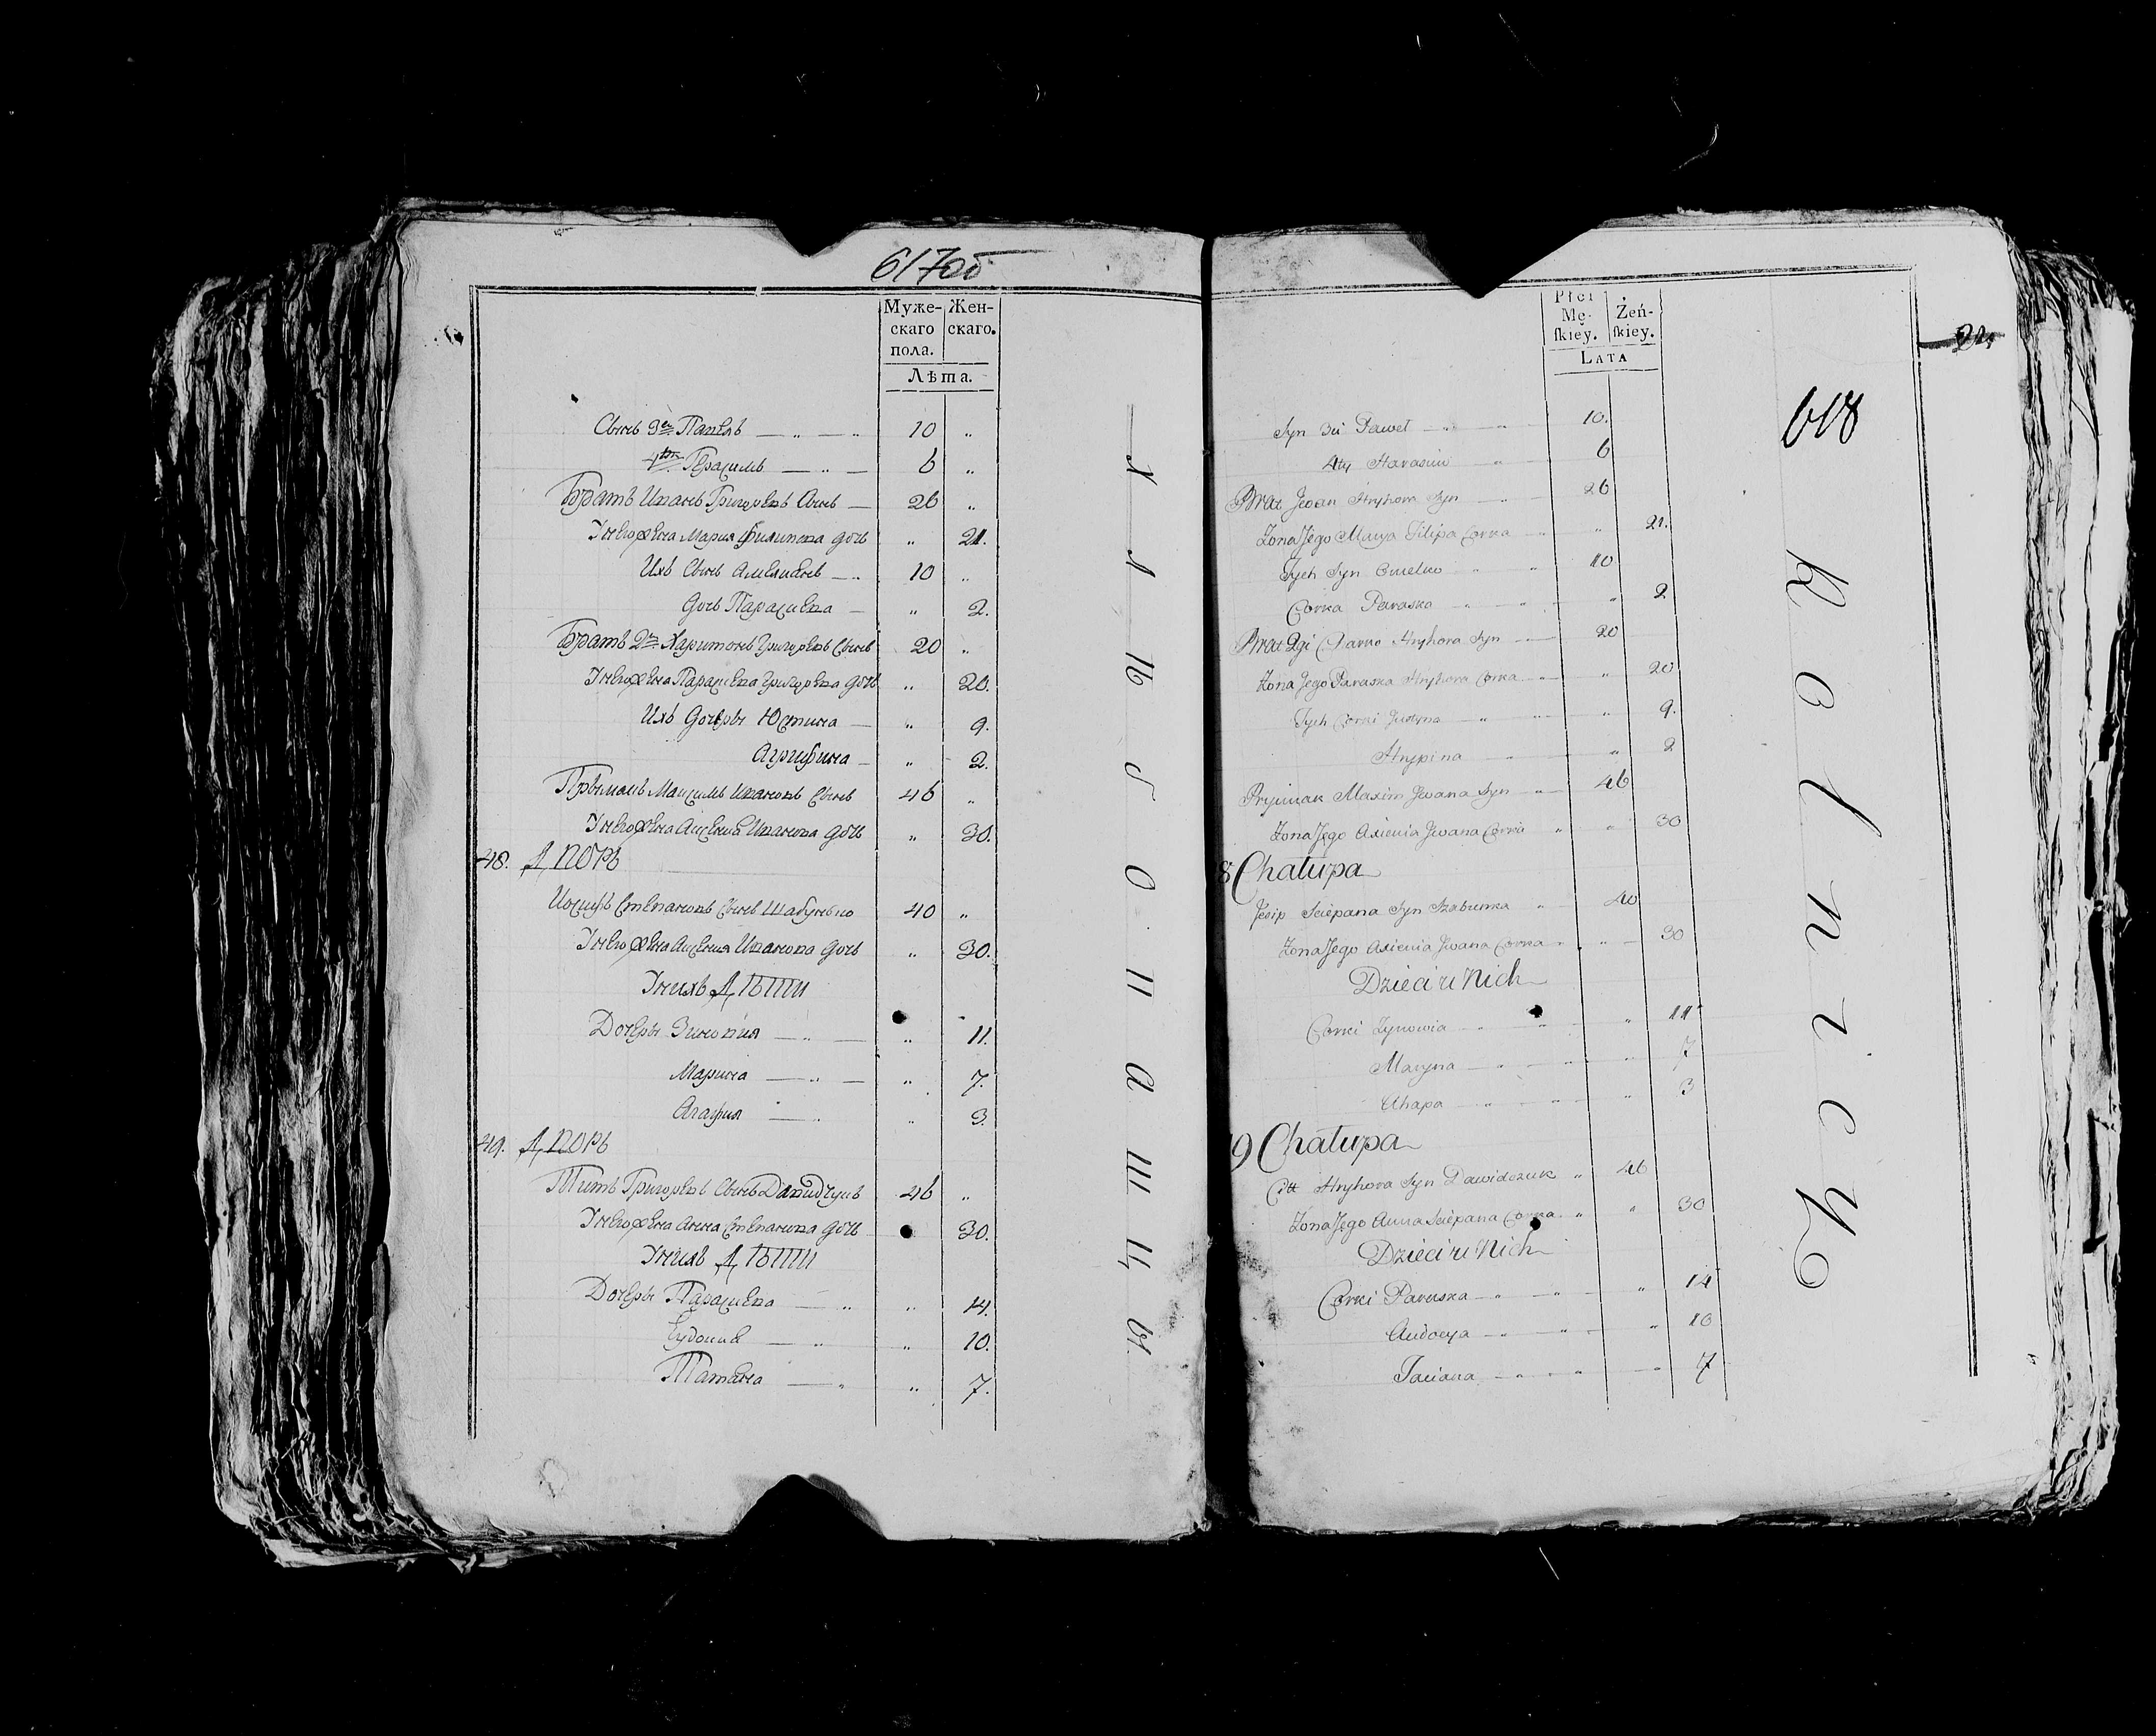 617об
Муже-
скаго
пола.
Жен-
скаго.
Лѣта.
Сынъ 3й Павелъ — " — " 10 "
4тй Герасимъ — " — 6 "
Братъ Иванъ Григорьевъ Сынъ — 26 "
У него жена Мария Филипова дочь " 21.
Ихъ Сынъ Амельянъ — " 10 "
Дочь Парасцева — " 2.
Братъ 2й Харитонъ Григорьевъ Сынъ 20 "
У него жена Парасцева Григорьева дочь " 20.
Ихъ Дочеры Юстина — " 9.
Агрифина — " 2.
Прымакъ Максимъ Ивановъ Сынъ 46 "
У него жена Аксения Иванова дочь " 30.
48. ДВОРЪ
Иосифъ Степановъ Сынъ Шабунько 40 "
У него жена Аксения Иванова дочь " 30.
У нихъ ДѢТИ
Дочеры Зиновия — " — " 11.
Марина — " — " 7.
Агафия — " " 3.
49. ДВОРЪ
Титъ Григорьевъ Сынъ Давидчукъ 46 "
У него жена Анна Степанова дочь 30.
У нихъ ДѢТИ
Дочеры Парасцева — " " 14.
Еудокия — " " 10.
Татьяна — " " 7.
Płci
Mę-
ſkiey.
Żeń-
ſkiey.
Lata
22
618
Syn 3ci Paweł — " — 10.
4ty Harasim " — 6
Brat Jwan Hryhora Syn — " — 26
Zona Jego Marya Filipa Corka — " 21.
Tych Syn Omelko " " 10
Corka Paraska " " " 2
Brat 2gi Charko Hryhora Syn — 20
Zona Jego Paraska Hryhora Corka — " 20
Tych Corki Justyna — " " 9.
Hrypina — " " 2
Prymak Maxim Jwana Syn " 46
Zona Jego Axienia Jwana Corka " " 30
8 Chałupa
Jesip Sciepana Syn Szabunka " 40
Zona Jego Axienia Jwana Corka " " 30
Dzieci u Nich
Corki Zynowia " " " 11
Maryna — " " 7
Ahapa — " " " 3
9 Chałupa
Citt Hryhora Syn Dawidczuk " 46
Zona Jego Anna Sciepana Corka " " 30
Dzieci u Nich
Corki Paraska — " " " 14
Audocya — " " " 10
Taciana — " " 7
K o l n i c y